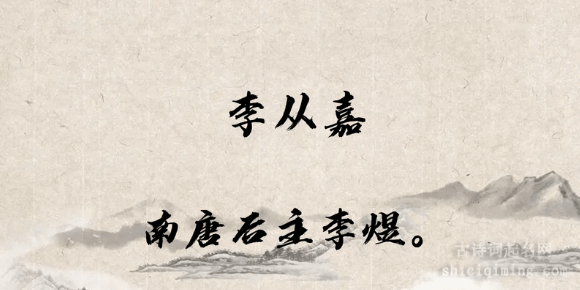 李从嘉
南唐后主李煜。
古诗词起名网
shiciqiming.com